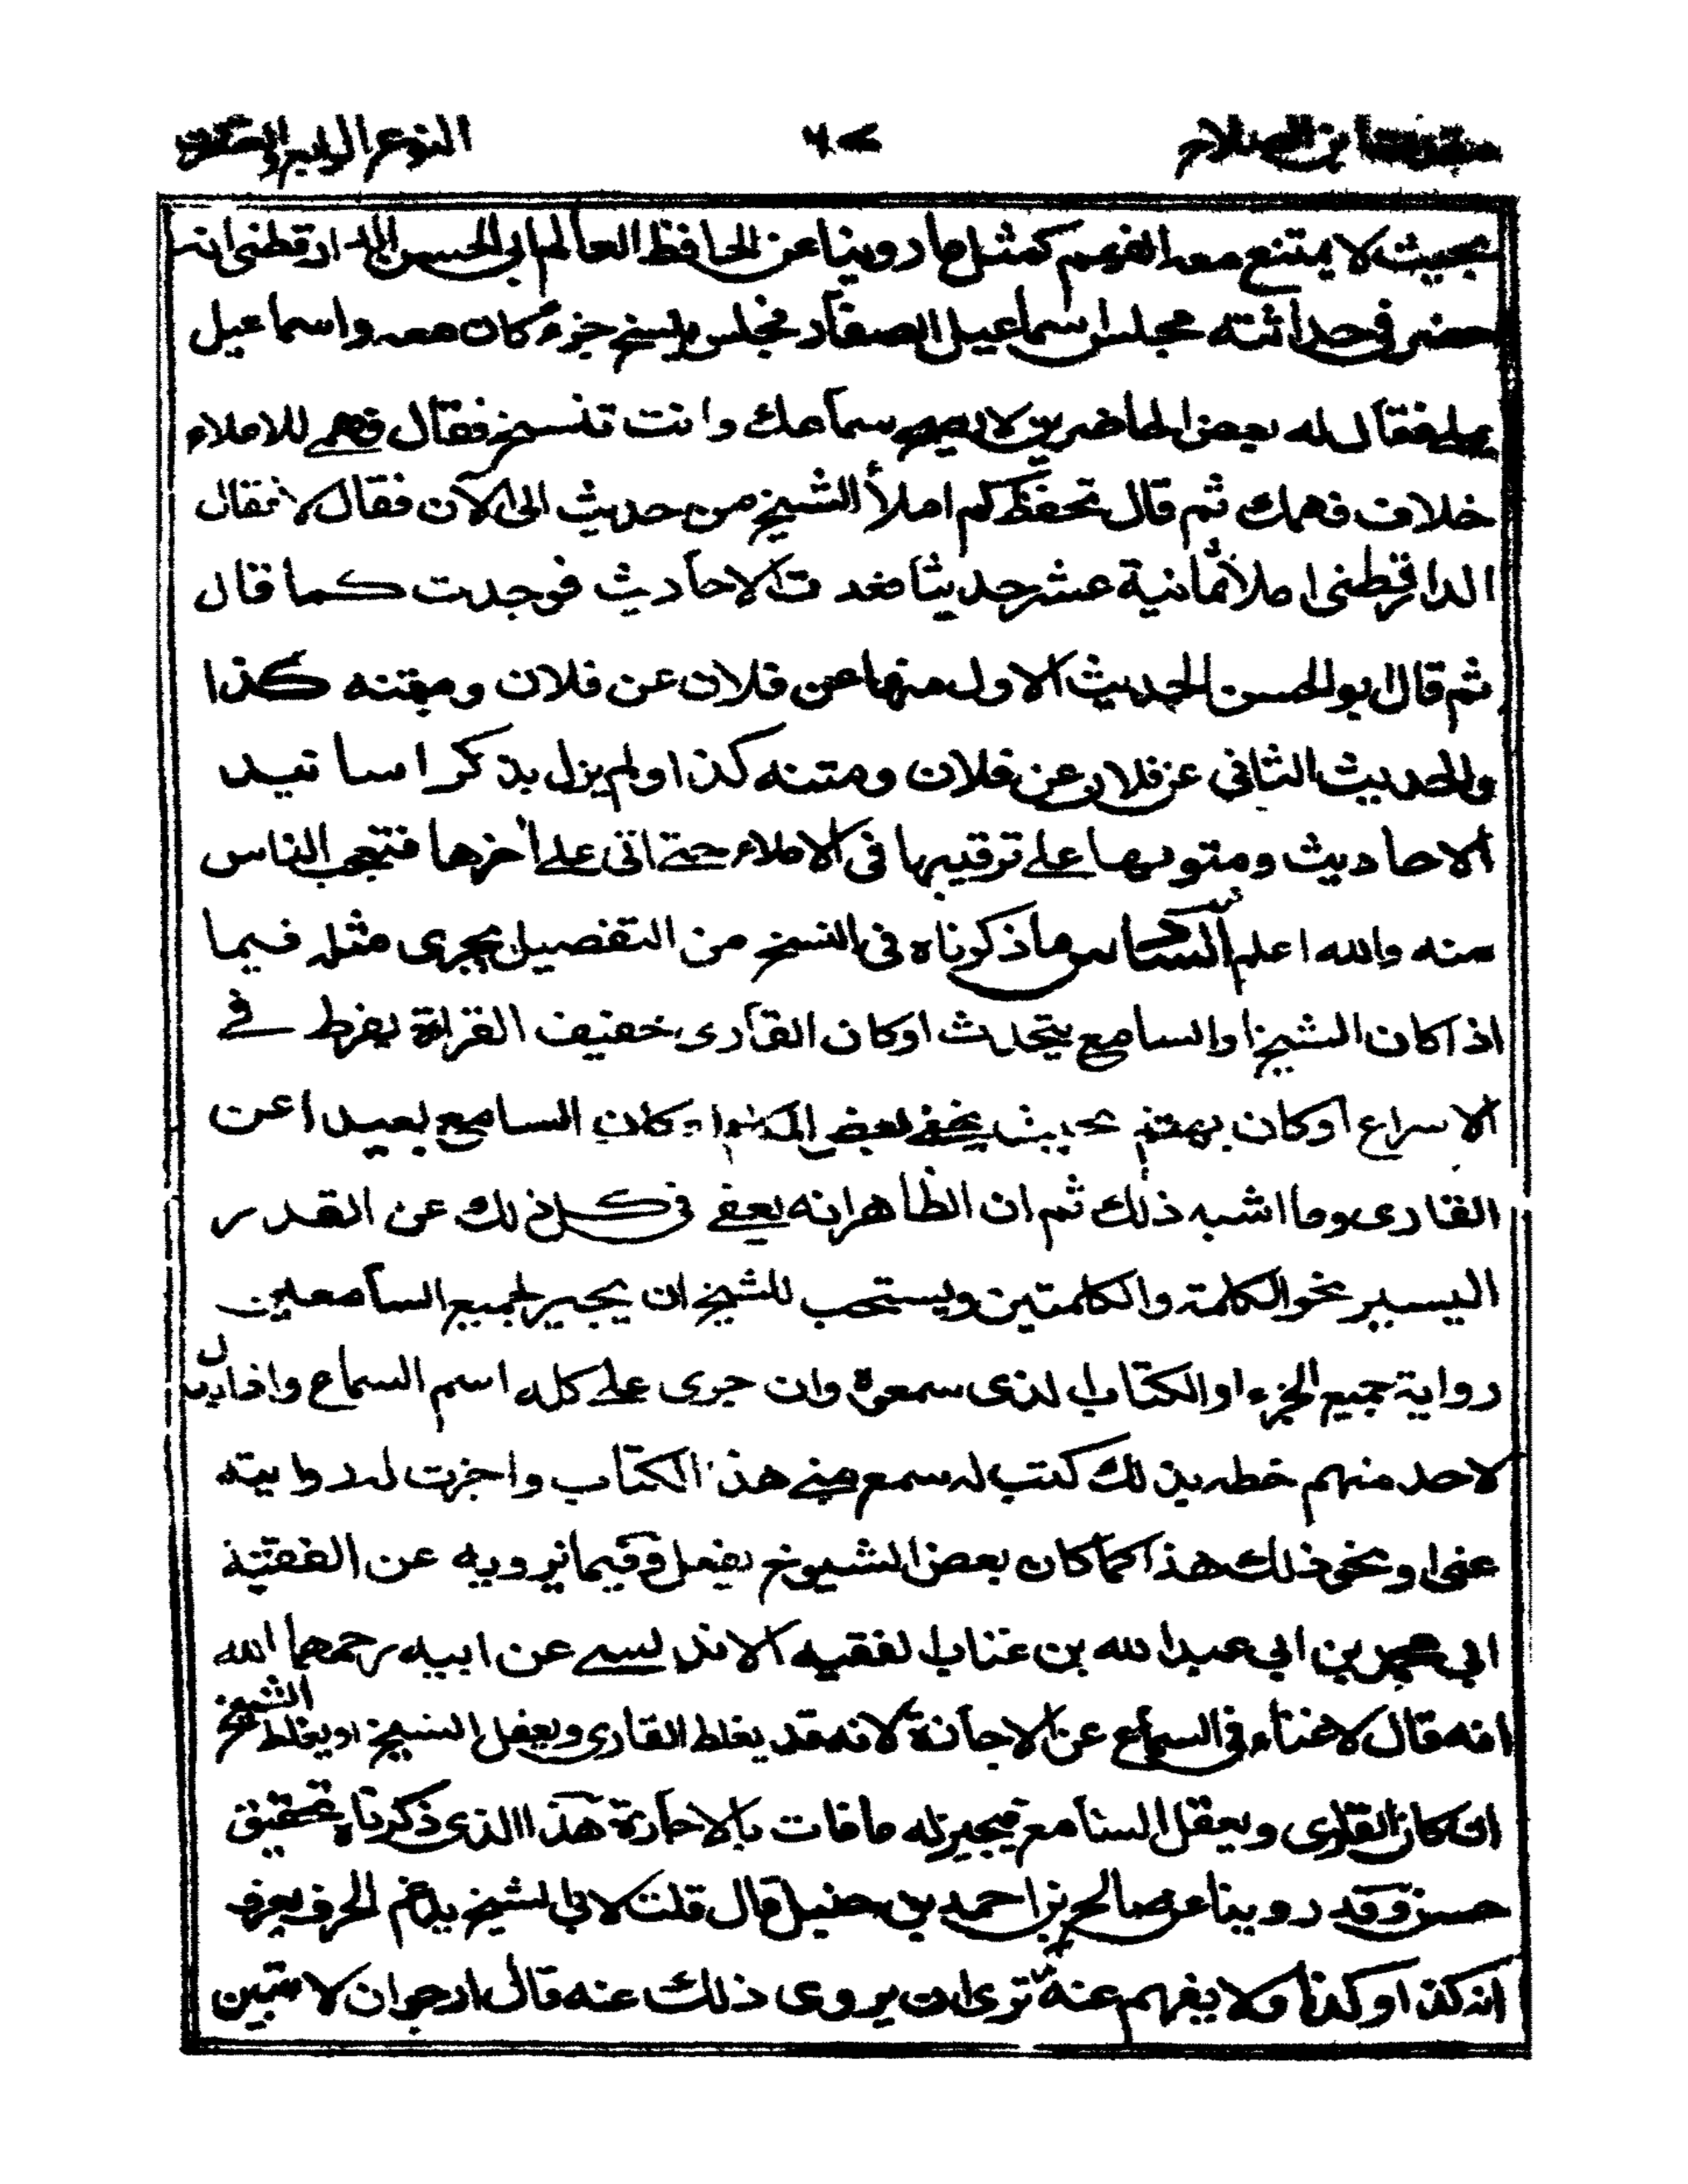 مقدمة ابن الصلاح
النوع الرابع والعشرون
بحيث لا يمتنع معه الفهم كمثل ما روينا عن الحافظ العالم ابي الحسن الدارقطني انه
حضر في حداثته مجلس اسماعيل الصفار فجلس ينسخ جزء كان معه واسماعيل
يملي فقال له بعض الحاضرين لا يصح سماعك وانت تنسخ فقال فهمي للاملاء
خلاف فهمك ثم قال تحفظ كم املأ الشيخ من حديث الى الآن فقال لا فقال
الدارقطني املأ ثمانية عشر حديثا فعدت الاحاديث فوجدت كما قال
ثم قال ابو الحسن الحديث الاول منها عن فلان عن فلان ومتنه كذا
والحديث الثاني عن فلان عن فلان ومتنه كذا ولم يزل يذكر اسانيد
الاحاديث ومتونها على ترتيبها في الاملاء حتى اتى على آخرها فتعجب الناس
منه والله اعلم السادس ما ذكرناه في النسخ من التفصيل يجرى مثله فيما
اذا كان الشيخ او السامع يتحدث او كان القارى خفيف القراءة يفرط في
الاسراع او كان يهينم بحيث يخفى بعض الكلم او كان السامع بعيدا عن
القارى وما اشبه ذلك ثم ان الظاهر انه يعفى في كل ذلك عن القدر
اليسير نحو الكلمة والكلمتين ويستحب للشيخ ان يجيز لجميع السامعين
رواية جميع الجزء او الكتاب الذى سمعوه وان جرى على كله اسم السماع واذا بذل
لاحد منهم خطه بذلك كتب له سمع مني هذا الكتاب واجزت له روايته
عنى او نحو ذلك هذا كما كان بعض الشيوخ يفعل وفيما نرويه عن الفقيه
ابي محمد بن ابي عبد الله بن عتاب الفقيه الاندلسي عن ابيه رحمهما الله
انه قال لا غناء في السماع عن الاجازة لانه قد يغلط القارى ويغفل الشيخ او يغلط الشيخ
ان كان القارى ويغفل السامع فيجيز له ما فات بالاجازة هذا الذى ذكرناه تحقيق
حسن وقد روينا عن صالح بن احمد بن حنبل قال قلت لابي الشيخ يدغم الحرف يعرف
انه كذا وكذا ولا يفهم عنه ترى ان يروى ذلك عنه قال ارجو ان لا